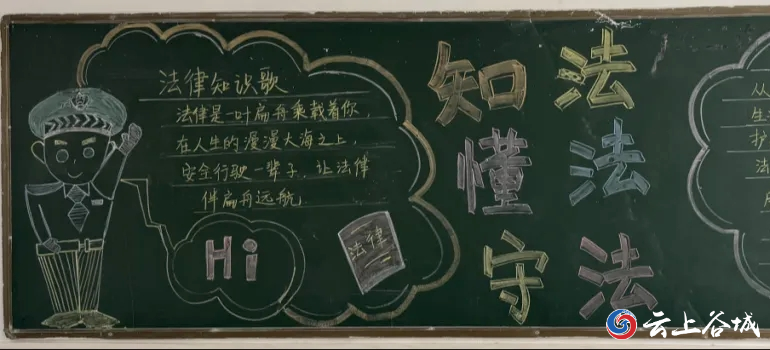 法律知识歌
法律是一叶扁舟乘载着你,
在人生的漫漫大海之上,
安全行驶一辈子,让法律
伴扁舟远航
Hi
法律
知法
懂法
守法
从
生
护
法
云上谷城